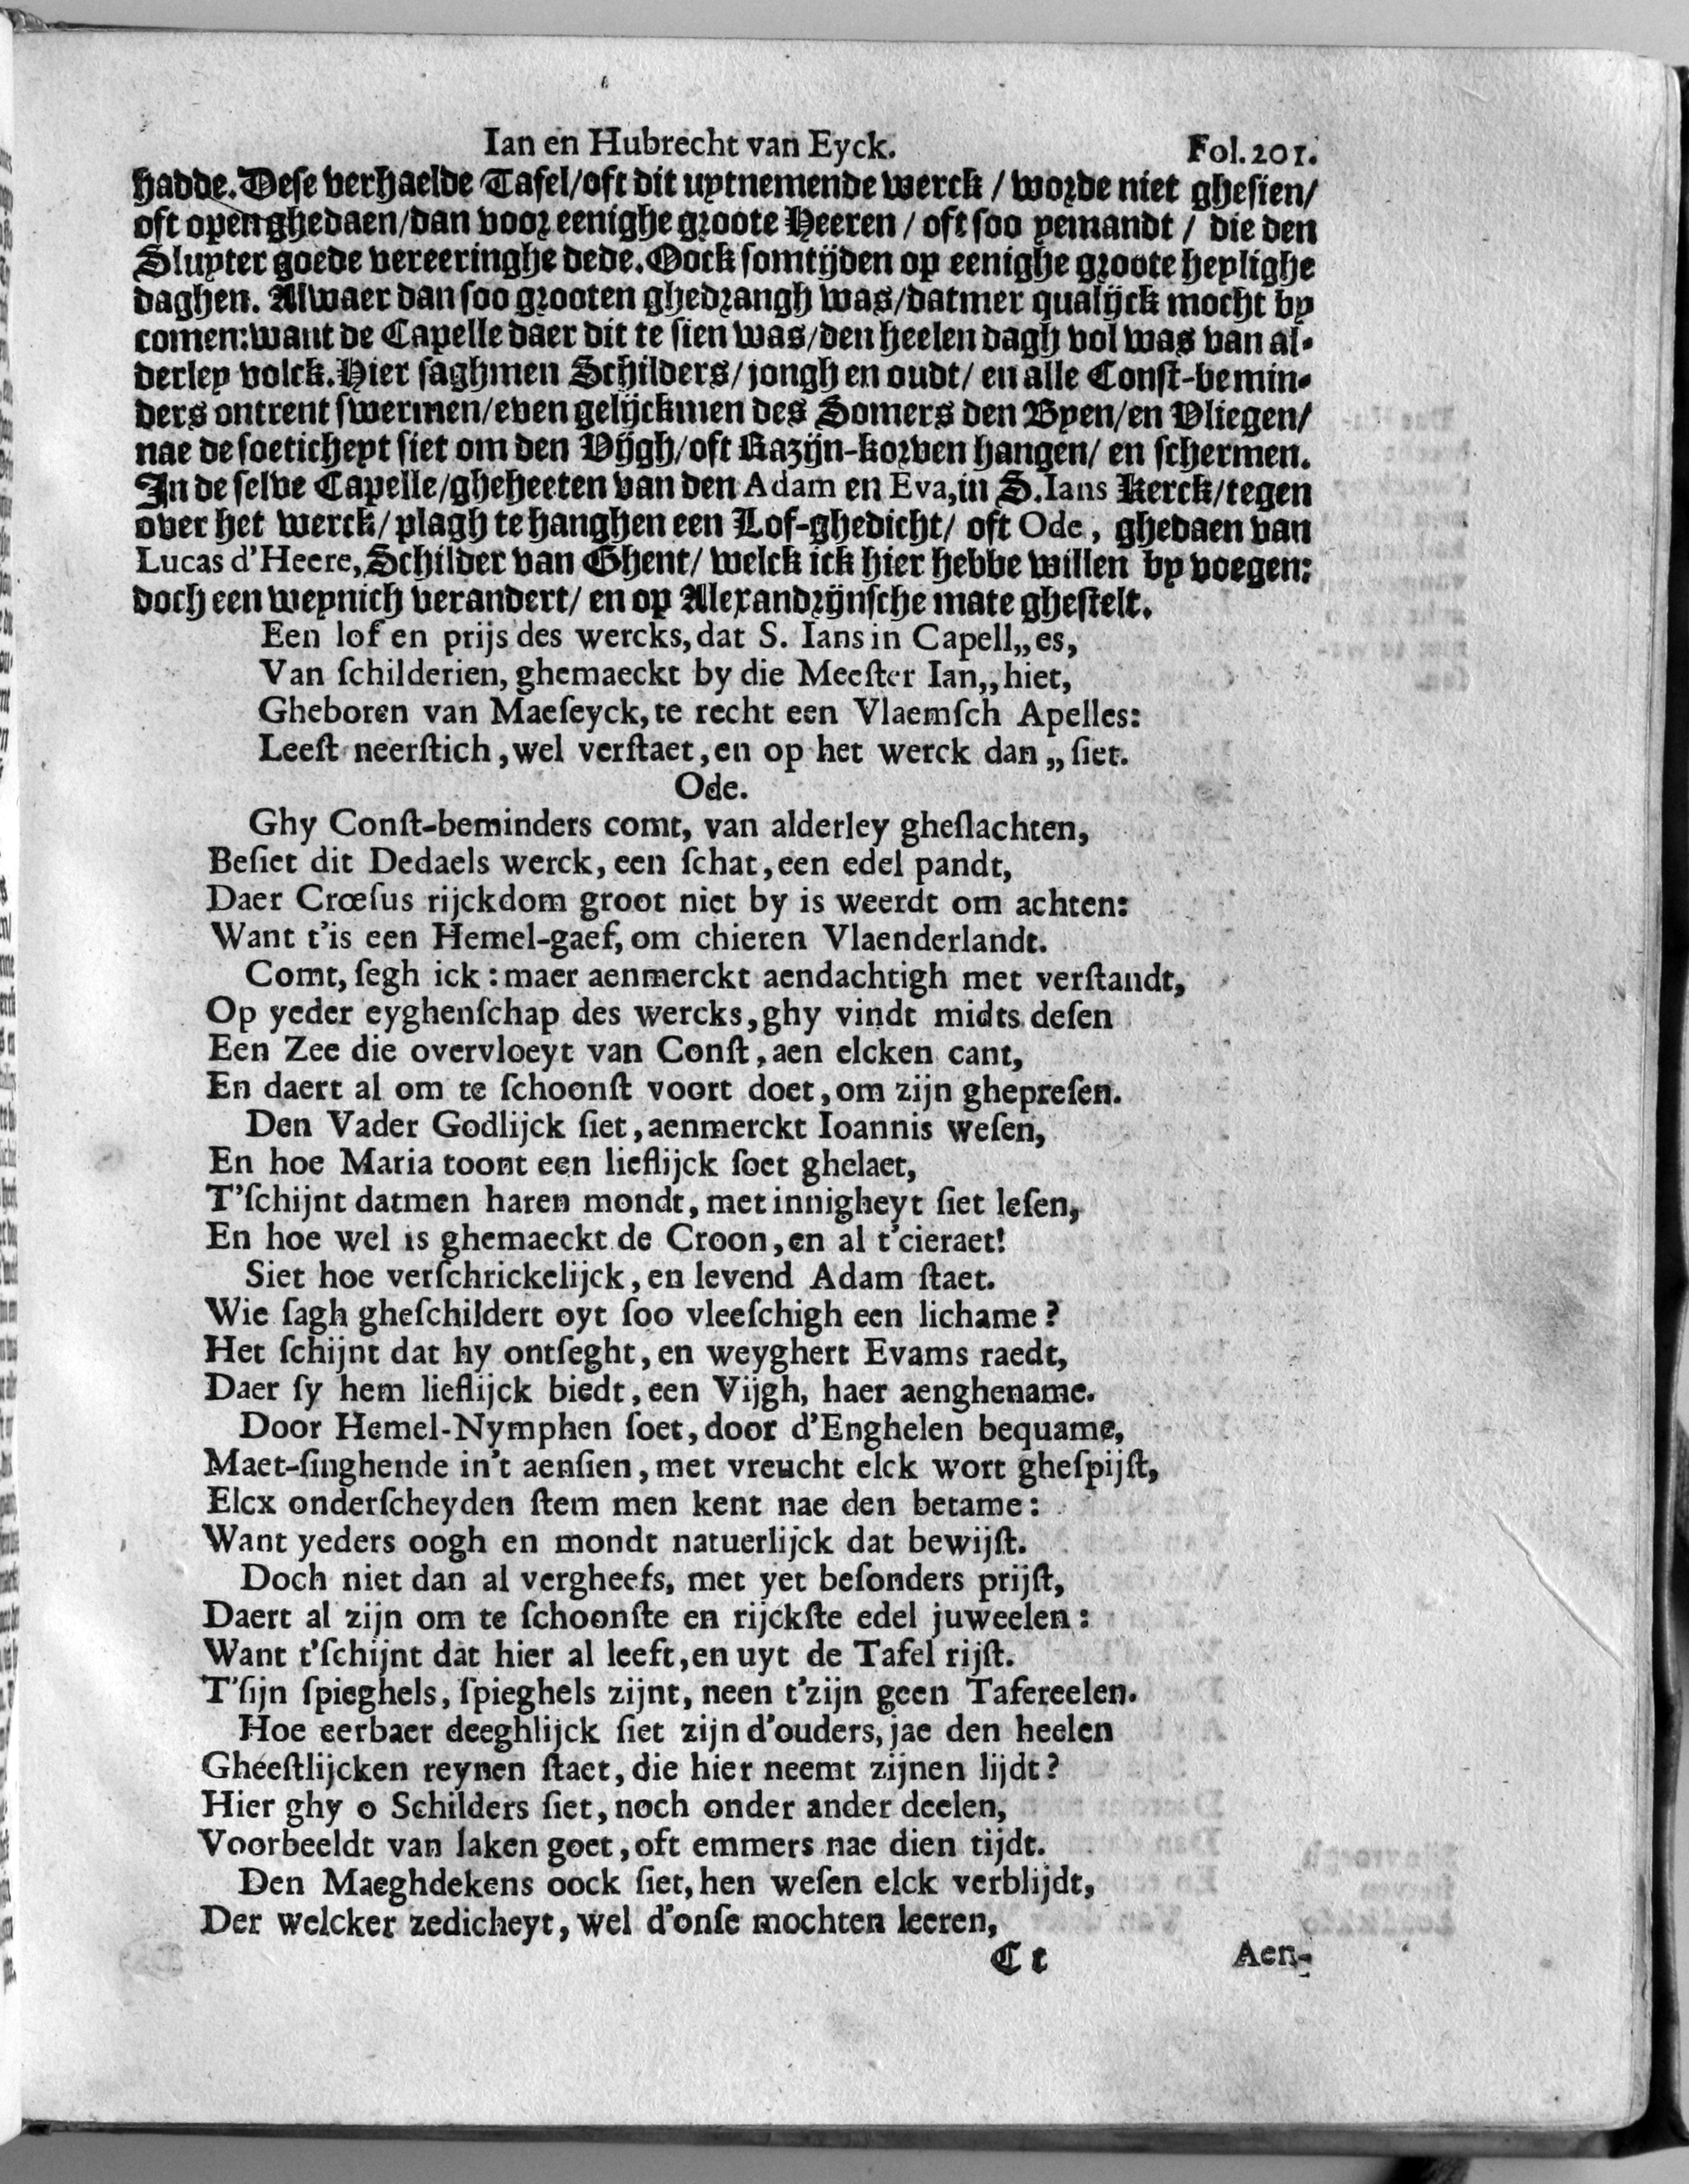 Ian en Hubrecht van Eyck. Fol. 201.
hadde. Dese verhaelde Tafel/oft dit uytnemende werck / worde niet ghesien/
oft openghedaen/dan voor eenighe groote Heeren / oft soo yemandt / die den
Sluyter goede vereeringhe dede. Oock somtijden op eenighe groote heylighe
daghen. Alwaer dan soo grooten ghedrangh was/datmer qualijck mocht by
comen: want de Capelle daer dit te sien was/den heelen dagh vol was van al-
derley volck. Hier saghmen Schilders/ jongh en oudt/ en alle Const-bemin-
ders ontrent swermen/even gelijckmen des Somers den Byen/en Vliegen/
nae de soeticheyt siet om den Vijgh/oft Razijn-korven hangen/ en schermen.
In de selve Capelle/gheheeten van den Adam en Eva, in S. Ians Kerck/tegen
over het werck/ plagh te hanghen een Lof-ghedicht/ oft Ode, ghedaen van
Lucas d'Heere, Schilder van Ghent/ welck ick hier hebbe willen by voegen:
doch een weynich verandert/ en op Alexandrijnsche mate ghestelt.
Een lof en prijs des wercks, dat S. Ians in Capell,, es,
Van ſchilderien, ghemaeckt by die Meeſter Ian,, hiet,
Gheboren van Maeſeyck, te recht een Vlaemſch Apelles:
Leeſt neerſtich, wel verſtaet, en op het werck dan ,, ſiet.
Ode.
Ghy Conſt-beminders comt, van alderley gheſlachten,
Beſiet dit Dedaels werck, een ſchat, een edel pandt,
Daer Crœſus rijckdom groot niet by is weerdt om achten:
Want t'is een Hemel-gaef, om chieren Vlaenderlandt.
Comt, ſegh ick: maer aenmerckt aendachtigh met verſtandt,
Op yeder eyghenſchap des wercks, ghy vindt midts deſen
Een Zee die overvloeyt van Conſt, aen elcken cant,
En daert al om te ſchoonſt voort doet, om zijn ghepreſen.
Den Vader Godlijck ſiet, aenmerckt Ioannis weſen,
En hoe Maria toont een lieflijck ſoet ghelaet,
T'ſchijnt datmen haren mondt, met innigheyt ſiet leſen,
En hoe wel is ghemaeckt de Croon, en al t'cieraet!
Siet hoe verſchrickelijck, en levend Adam ſtaet.
Wie ſagh gheſchildert oyt ſoo vleeſchigh een lichame?
Het ſchijnt dat hy ontſeght, en weyghert Evams raedt,
Daer ſy hem lieflijck biedt, een Vijgh, haer aenghename.
Door Hemel-Nymphen ſoet, door d'Enghelen bequame,
Maet-ſinghende in't aenſien, met vreucht elck wort gheſpijſt,
Elcx onderſcheyden ſtem men kent nae den betame:
Want yeders oogh en mondt natuerlijck dat bewijſt.
Doch niet dan al vergheefs, met yet beſonders prijſt,
Daert al zijn om te ſchoonſte en rijckſte edel juweelen:
Want t'ſchijnt dat hier al leeft, en uyt de Tafel rijſt.
T'ſijn ſpieghels, ſpieghels zijnt, neen t'zijn geen Tafereelen.
Hoe eerbaer deeghlijck ſiet zijn d'ouders, jae den heelen
Gheeſtlijcken reynen ſtaet, die hier neemt zijnen lijdt?
Hier ghy o Schilders ſiet, noch onder ander deelen,
Voorbeeldt van laken goet, oft emmers nae dien tijdt.
Den Maeghdekens oock ſiet, hen weſen elck verblijdt,
Der welcker zedicheyt, wel d'onſe mochten leeren,
C c Aen-